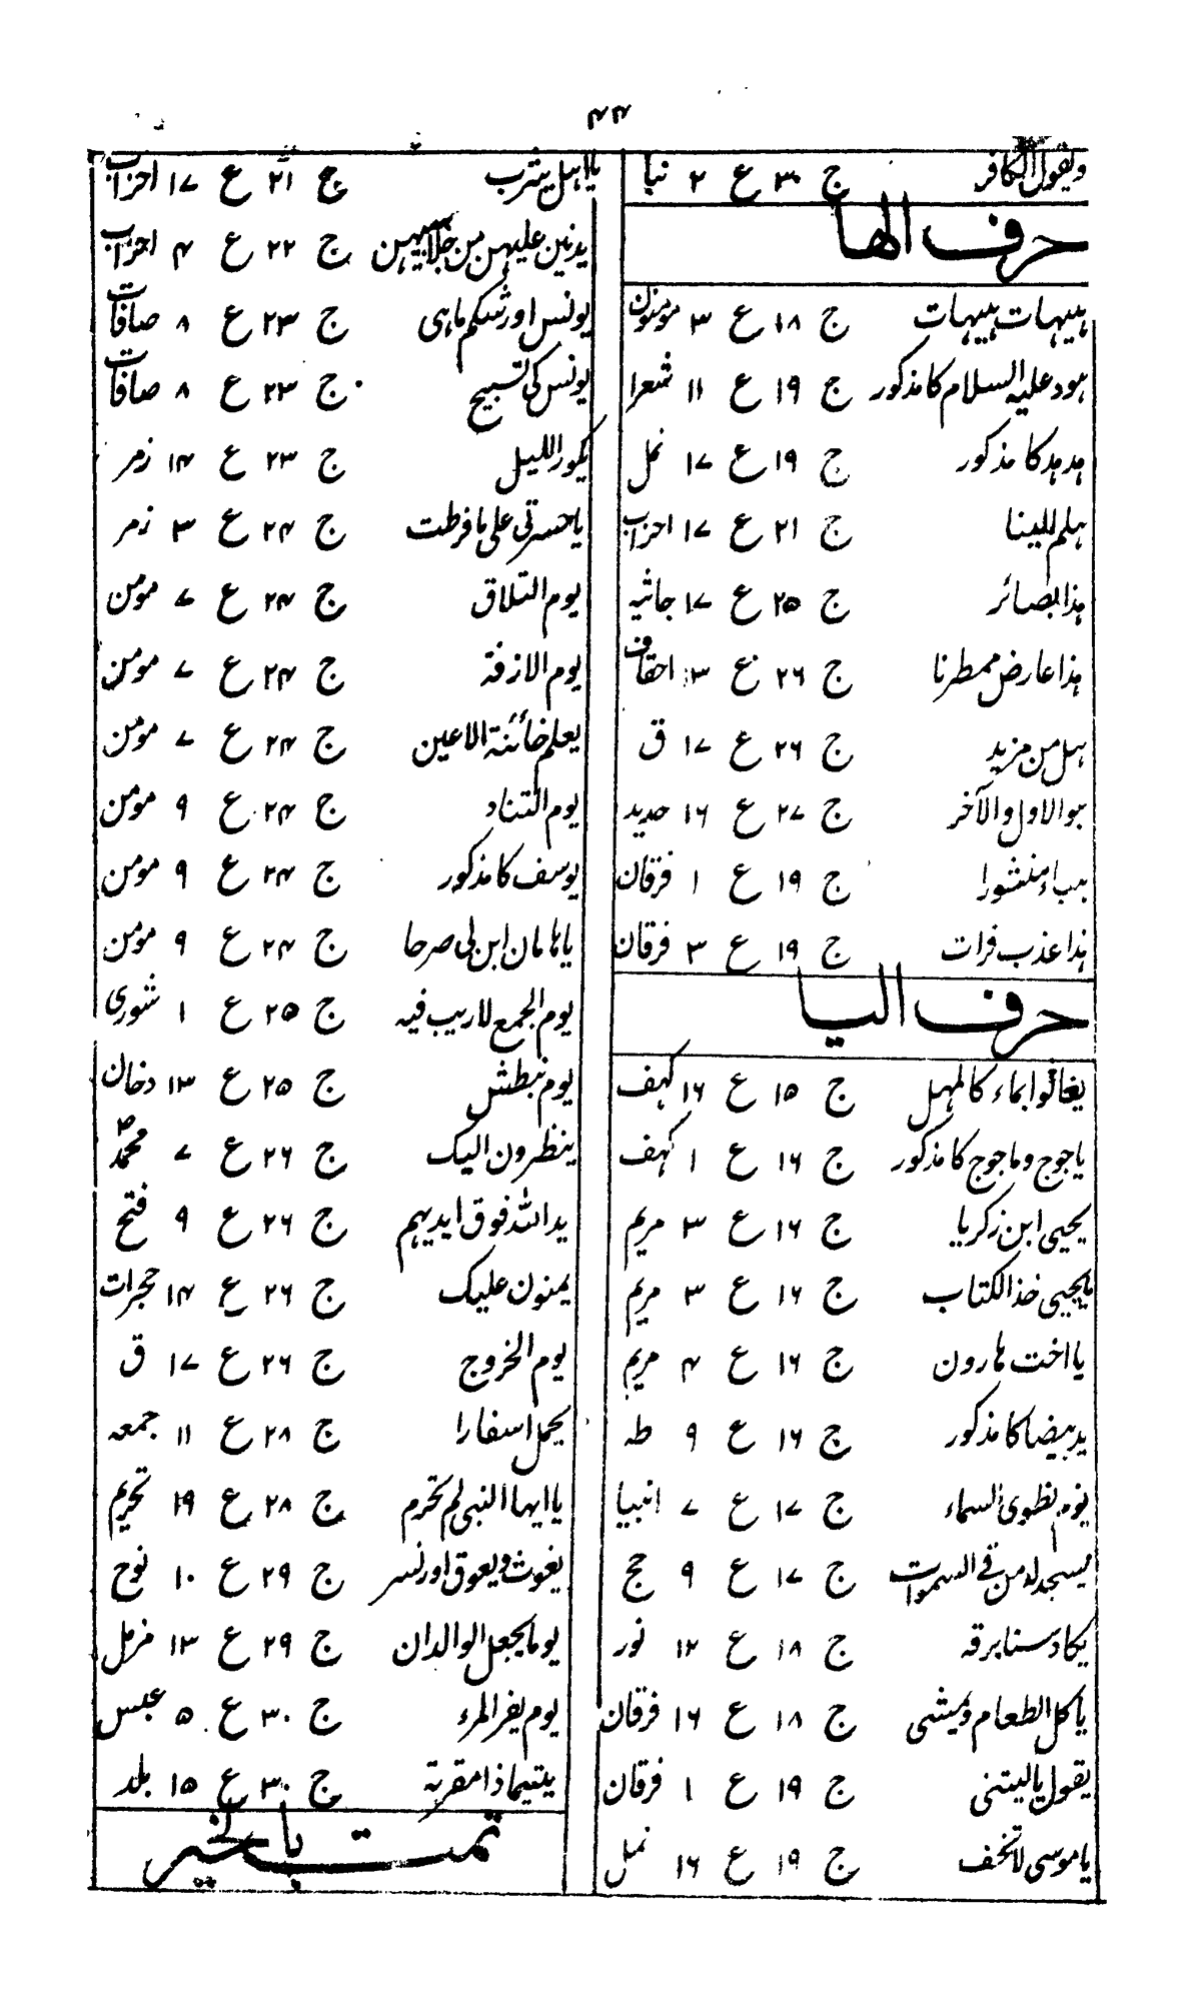 ۴۴
ویقول الکافر ج ۳۰ ع ۲ نبا
حرف الھا
ہیہات ہیہات ج ۱۸ ع ۳ مومنون
ہود علیہ السلام کا مذکور ج ۱۹ ع ۱۱ شعرا
ہدہد کا مذکور ج ۱۹ ع ۱۷ نمل
ہلم للینا ج ۲۱ ع ۱۷ احزاب
ہذا بصائر ج ۲۵ ع ۱۷ جاثیہ
ہذا عارض ممطرنا ج ۲۶ ع ۳ احقاف
ہل من مزید ج ۲۶ ع ۱۷ ق
ہو الاول والآخر ج ۲۷ ع ۱۶ حدید
ہباء منشورا ج ۱۹ ع ۱ فرقان
ہذا عذب فرات ج ۱۹ ع ۳ فرقان
حرف الیا
یغاثوا بماء کالمہل ج ۱۵ ع ۱۶ کہف
یاجوج وماجوج کا مذکور ج ۱۶ ع ۱ کہف
یحیی ابن زکریا ج ۱۶ ع ۳ مریم
یایحیی خذ الکتاب ج ۱۶ ع ۳ مریم
یا اخت ہارون ج ۱۶ ع ۴ مریم
ید بیضا کا مذکور ج ۱۶ ع ۹ طہ
یوم نطوی السماء ج ۱۷ ع ۷ انبیا
یسجد لہ من فی السموات ج ۱۷ ع ۹ حج
یکاد سنا برقہ ج ۱۸ ع ۱۲ نور
یاکل الطعام ویمشی ج ۱۸ ع ۱۶ فرقان
یقول یالیتنی ج ۱۹ ع ۱ فرقان
یاموسی لاتخف ج ۱۹ ع ۱۶ نمل
یااہل یثرب ج ۲۱ ع ۱۷ احزاب
یدنین علیہن من جلابیبہن ج ۲۲ ع ۴ احزاب
یونس اور شکم ماہی ج ۲۳ ع ۸ صافات
یونس کی تسبیح ج ۲۳ ع ۸ صافات
یکور اللیل ج ۲۳ ع ۱۴ زمر
یاحسرتی علی مافرطت ج ۲۴ ع ۳ زمر
یوم التلاق ج ۲۴ ع ۷ مومن
یوم الازفۃ ج ۲۴ ع ۷ مومن
یعلم خائنۃ الاعین ج ۲۴ ع ۷ مومن
یوم التناد ج ۲۴ ع ۹ مومن
یوسف کا مذکور ج ۲۴ ع ۹ مومن
یاہامان ابن لی صرحا ج ۲۴ ع ۹ مومن
یوم الجمع لاریب فیہ ج ۲۵ ع ۱ شوری
یوم نبطش ج ۲۵ ع ۱۳ دخان
ینظرون الیک ج ۲۶ ع ۷ محمدؐ
ید اللہ فوق ایدیہم ج ۲۶ ع ۹ فتح
یمنون علیک ج ۲۶ ع ۱۴ حجرات
یوم الخروج ج ۲۶ ع ۱۷ ق
یحمل اسفارا ج ۲۸ ع ۱۱ جمعہ
یاایہا النبی لم تحرم ج ۲۸ ع ۱۹ تحریم
یغوث ویعوق اور نسر ج ۲۹ ع ۱۰ نوح
یوما یجعل الوالدان ج ۲۹ ع ۱۳ مزمل
یوم یفر المرء ج ۳۰ ع ۵ عبس
یتیما ذا مقربۃ ج ۳۰ ع ۱۵ بلد
تمت بالخیر